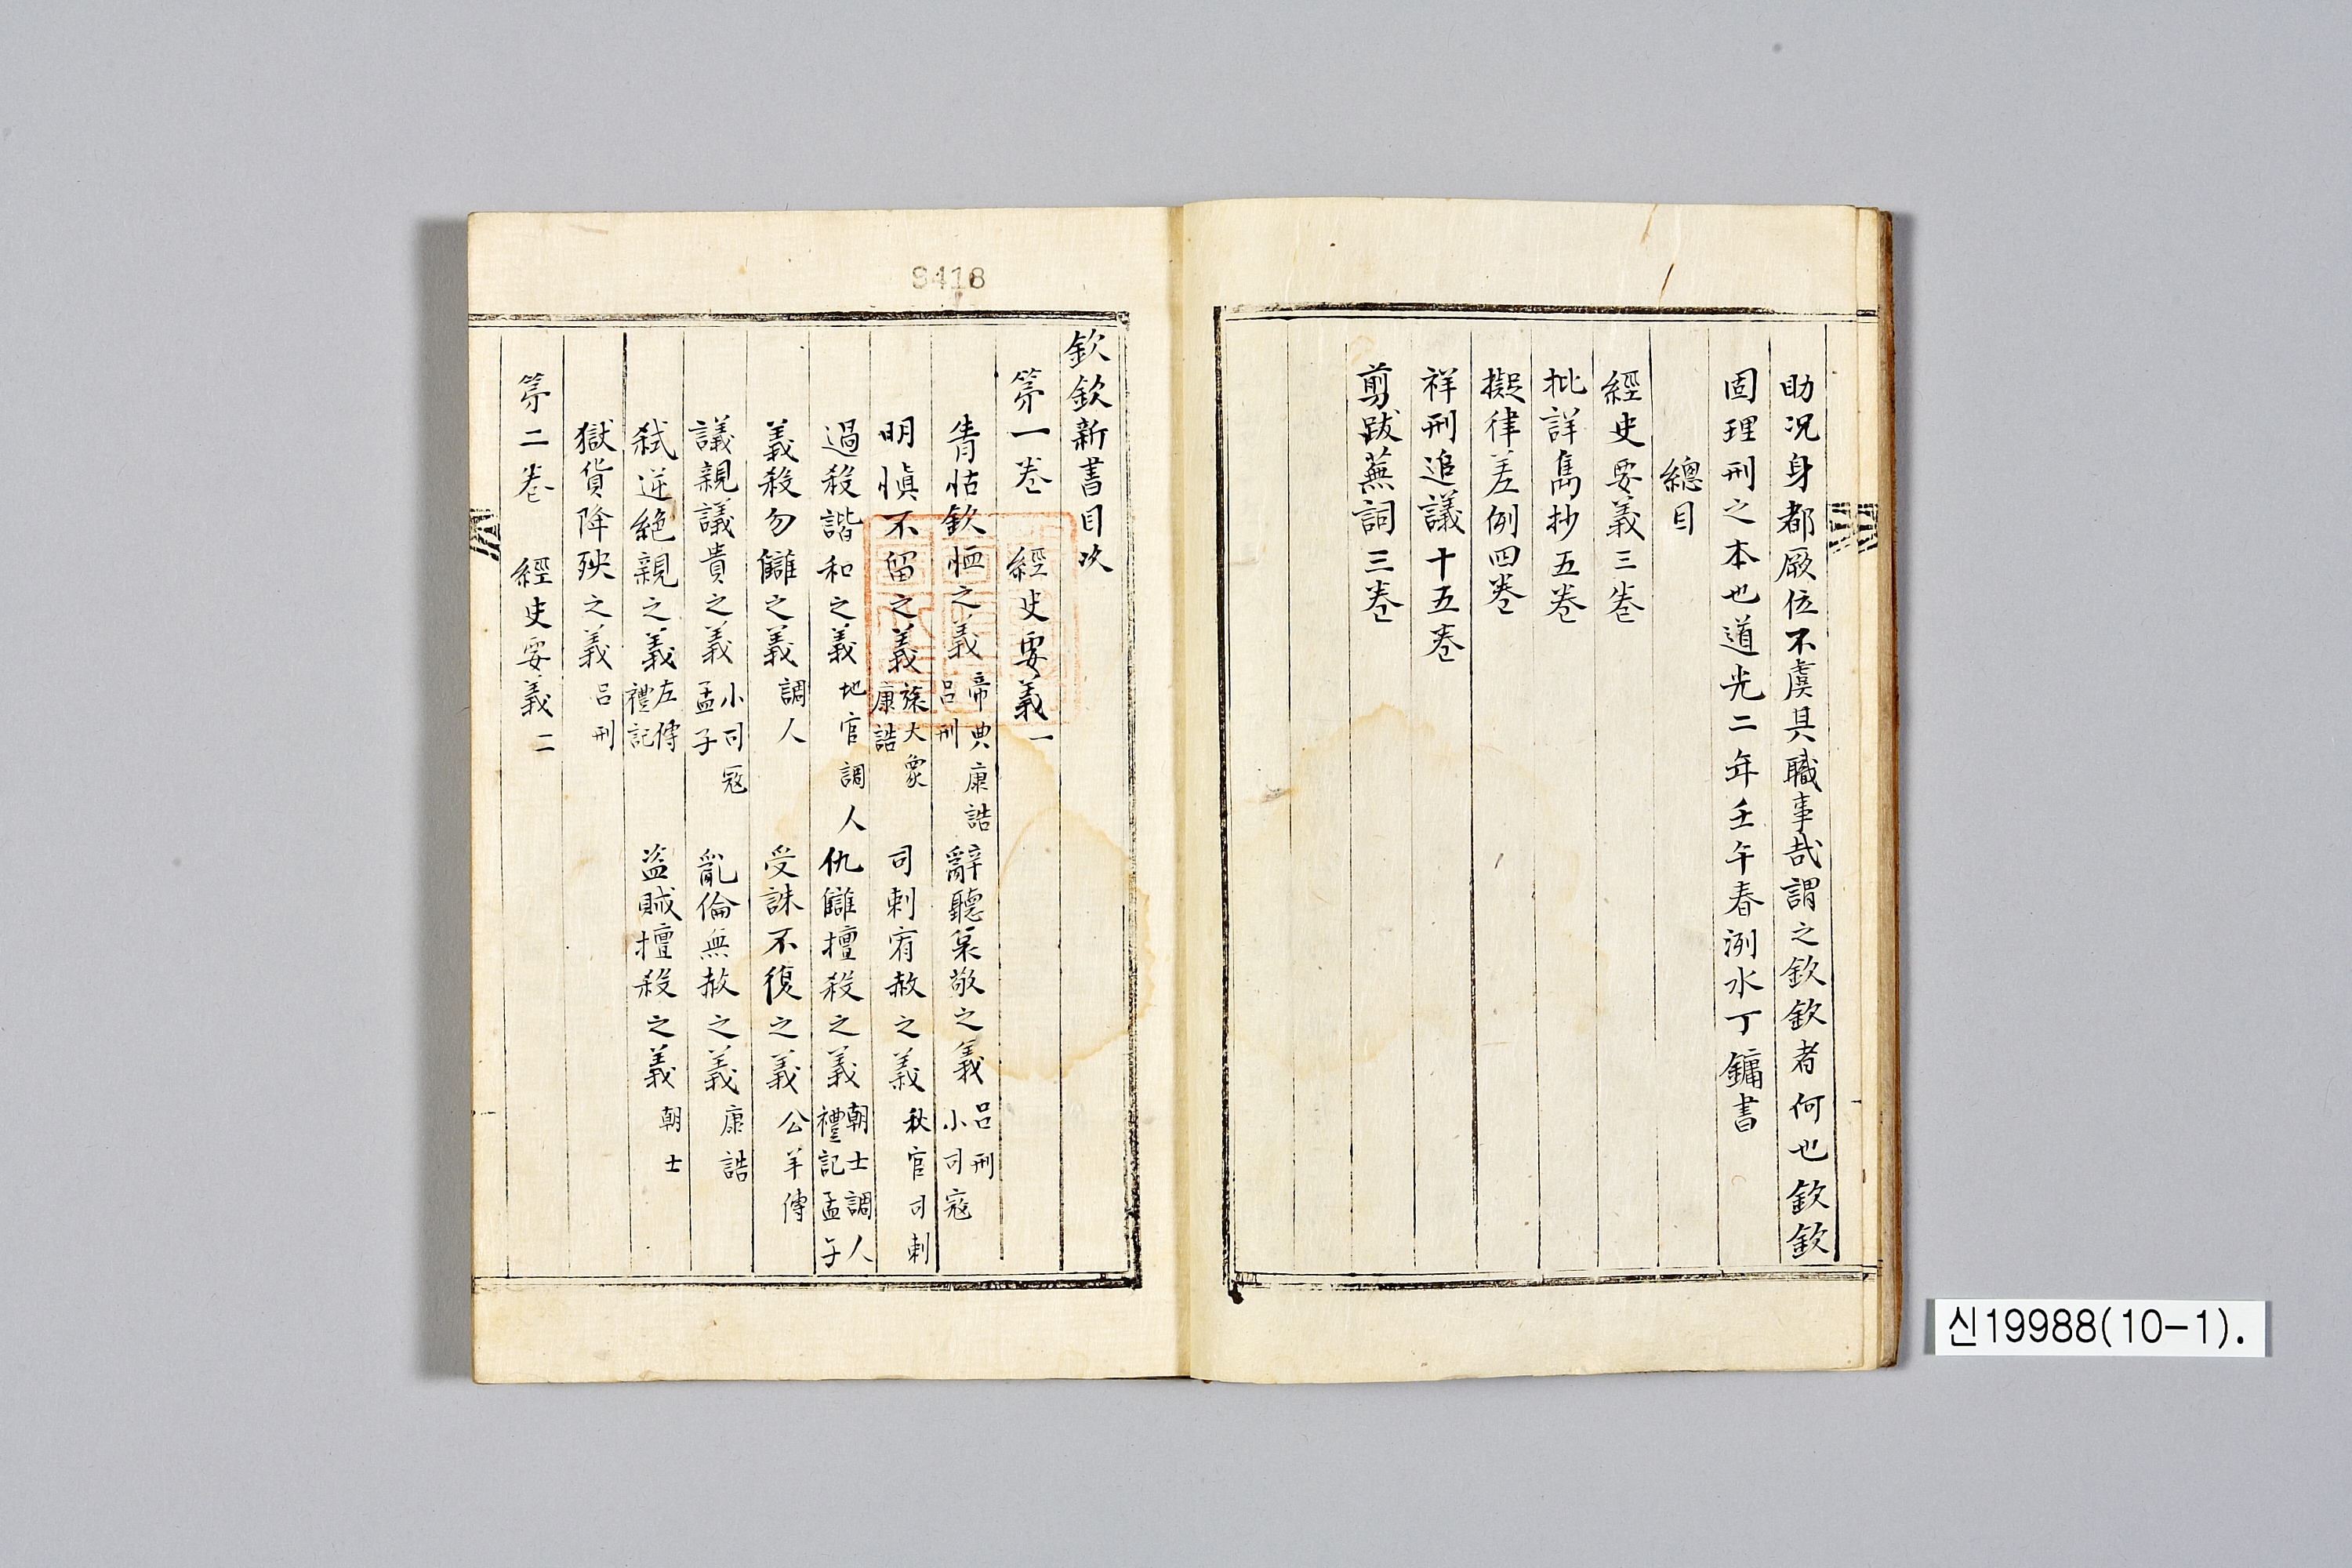 助况身都厥位不虔其職事哉謂之欽欽者何也欽欽
固理刑之本也道光二年壬午春洌水丁鏞書
總目
經史要義三卷
批詳雋抄五卷
擬律差例四卷
祥刑追議十五卷
剪跋蕪詞三卷
欽欽新書目次
第一卷 經史要義一
眚怙欽恤之義 帝典康誥 呂刑 辭聽哀敬之義 呂刑 小司寇
明愼不留之義 旅大象 康誥 司刺宥赦之義 秋官司刺
過殺諧和之義 地官調人 仇讎擅殺之義 朝士調人 禮記孟子
義殺勿讎之義 調人 受誅不復之義 公羊傳
議親議貴之義 小司寇 孟子 亂倫無赦之義 康誥
弑逆絶親之義 左傳 禮記 盜賊擅殺之義 朝士
獄貨降殃之義 呂刑
第二卷 經史要義二
9418
신19988(10-1).